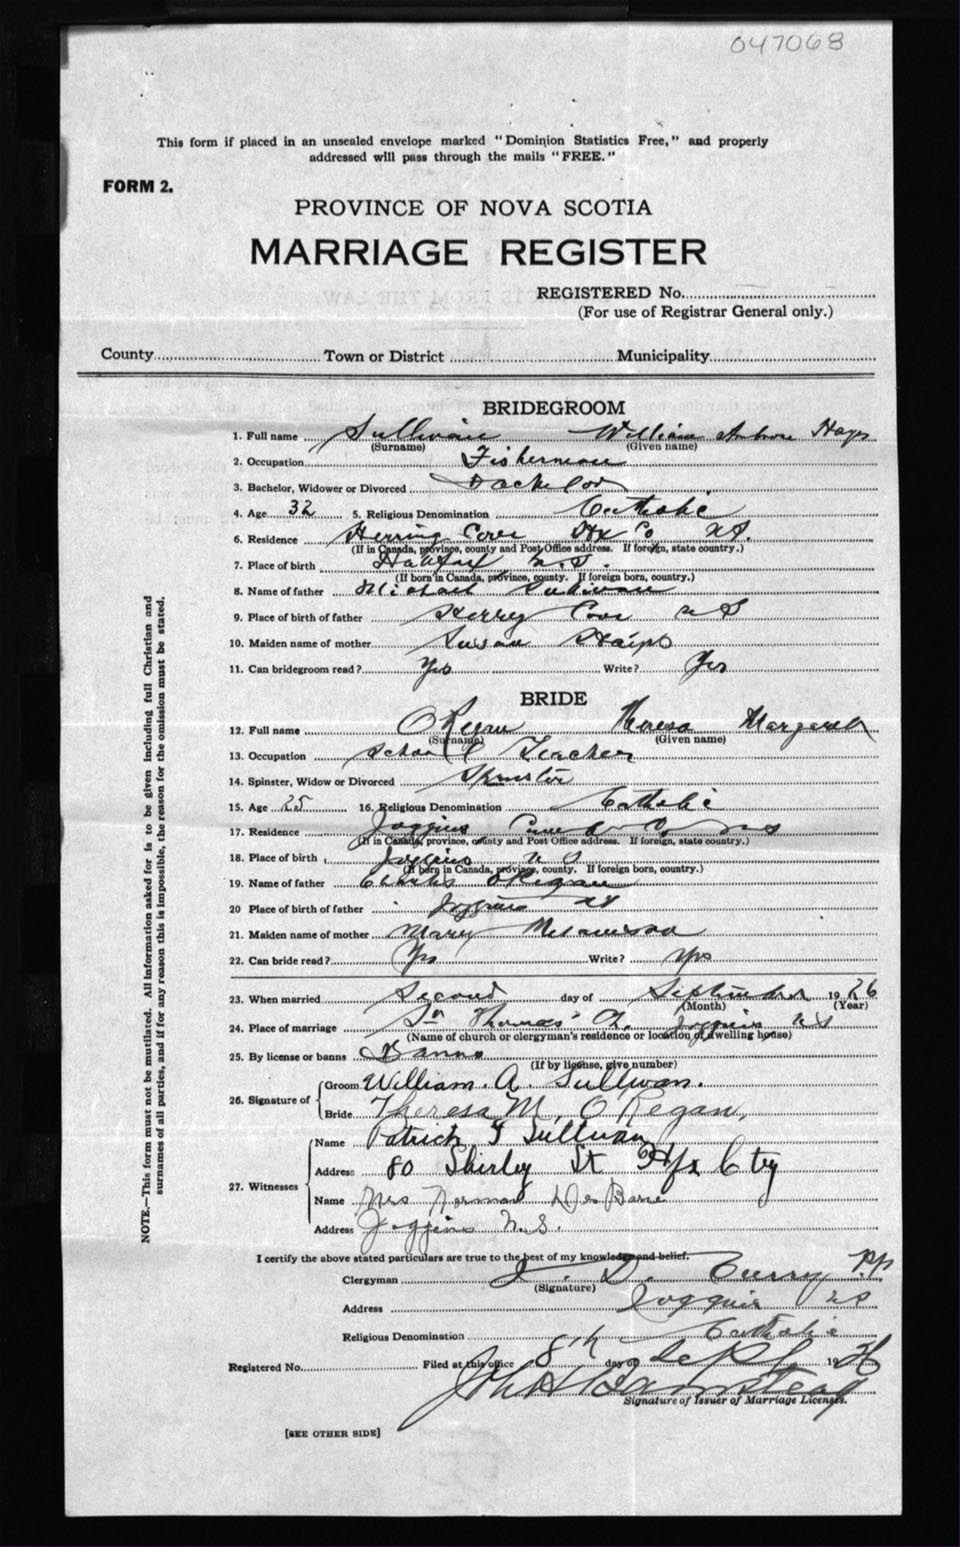 047068
This form if placed in an unsealed envelope marked "Dominion Statistics Free," and properly
addressed will pass through the mails "FREE."
FORM 2.
PROVINCE OF NOVA SCOTIA
MARRIAGE REGISTER
REGISTERED No.
(For use of Registrar General only.)
County Town or District Municipality
BRIDEGROOM
1. Full name Sullivan William Ambrose Hays
(Surname) (Given name)
2. Occupation Fisherman
3. Bachelor, Widower or Divorced Bachelor
4. Age 32 5. Religious Denomination Catholic
6. Residence Herring Cove Hx Co N.S.
(If in Canada, province, county and Post Office address. If foreign, state country.)
7. Place of birth Halifax N.S.
(If born in Canada, province, county. If foreign born, country.)
8. Name of father Michael Sullivan
9. Place of birth of father Cove N S
10. Maiden name of mother Susan
11. Can bridegroom read? Yes Write? Yes
BRIDE
12. Full name O'Regan Theresa Margaret
(Surname) (Given name)
13. Occupation School Teacher
14. Spinster, Widow or Divorced Spinster
15. Age 25 16. Religious Denomination Catholic
17. Residence Joggins Cumb Co. N S
(If in Canada, province, county and Post Office address. If foreign, state country.)
18. Place of birth Joggins N S
(If born in Canada, province, county. If foreign born, country.)
19. Name of father Charles O'Regan
20 Place of birth of father Joggins NS
21. Maiden name of mother Mary
22. Can bride read? Yes Write? Yes
23. When married Second day of September 1926
(Month) (Year)
24. Place of marriage St Thomas' Ch. Joggins NS
(Name of church or clergyman's residence or location of dwelling house)
25. By license or banns Banns
(If by license, give number)
26. Signature of Groom William. A. Sullivan.
Bride Theresa M. O'Regan,
27. Witnesses Name Patrick J Sullivan
Address 80 Shirley St Hfx City
Name Mrs Norman Des Barre
Address Joggins N.S.
I certify the above stated particulars are true to the best of my knowledge and belief.
Clergyman J. D. Curry P.P.
(Signature)
Address Joggins NS
Religious Denomination Catholic
Registered No. Filed at this office 8th day of Sept 1926
Signature of Issuer of Marriage Licenses.
[SEE OTHER SIDE]
NOTE.—This form must not be mutilated. All information asked for is to be given including full Christian and
surnames of all parties, and if for any reason this is impossible, the reason for the omission must be stated.